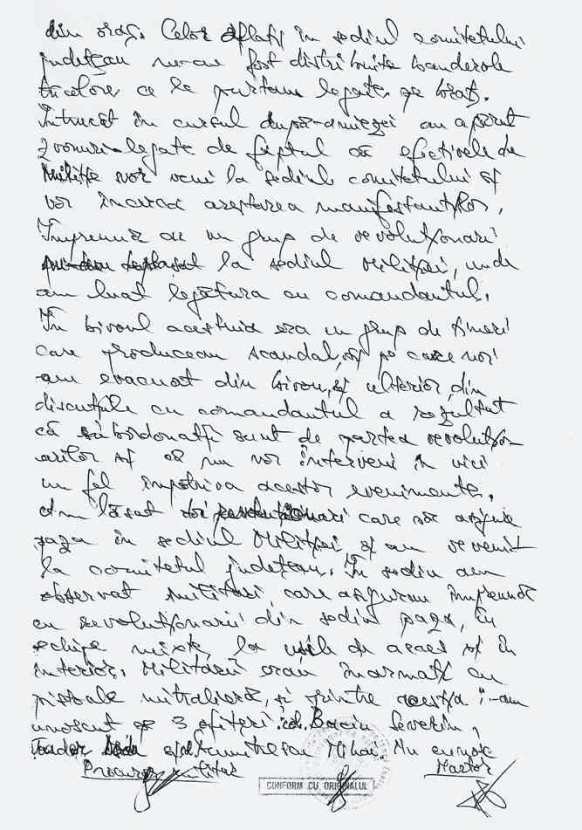 din oraș. Celor aflați în sediul comitetului
județean ne-au fost distribuite banderole
tricolore, ce le purtam legate pe braț.
Întrucât în cursul după-amiezei au apărut
zvonuri legate de faptul că efectivele de
Miliție vor veni la sediul comitetului și
vor încerca arestarea manifestanților,
Împreună cu un grup de revoluționari
la sediul Miliției, unde
am luat legătura cu comandantul.
În biroul acestuia era un grup de tineri
care produceau scandal, și pe care noi
i-am evacuat din birou, și ulterior, din
discuțiile cu comandantul a rezultat
că subordonații sunt de partea revoluțion
arilor și că nu vor interveni în nici
un fel împotriva acestor evenimente.
Am lăsat doi revoluționari care să asigure
paza în sediul Miliției, și am revenit
la comitetul județean. În sediu am
observat militari, care asigurau împreună
cu revoluționarii din sediu paza, în
echipe mixte, la ușile de acces și în
interior. Militarii erau înarmați cu
pistoale mitralieră, și printre aceștia i-am
cunoscut pe 3 ofițeri: Severin,
Toader Mihai. Nu cunosc
Procuror militar Martor
CONFORM CU ORIGINALUL